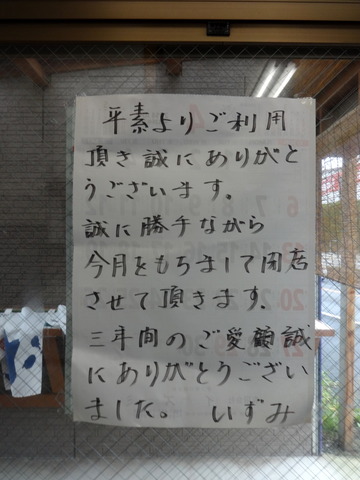 平素よりご利用
頂き誠にありがと
うございます。
誠に勝手ながら
今月をもちまして閉店
させて頂きます。
三年間のご愛顧誠
にありがとうござい
ました。 いずみ